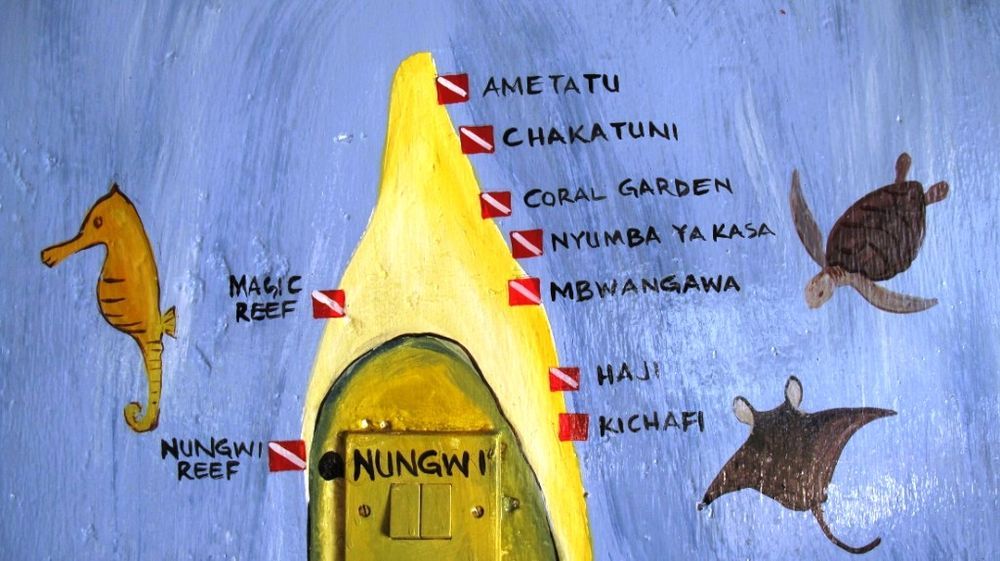 AMETATU
CHAKATUNI
CORAL GARDEN
NYUMBA YA KASA
MAGIC
REEF
MBWANGAWA
HAJI
KICHAFI
NUNGWI
REEF
NUNGWI